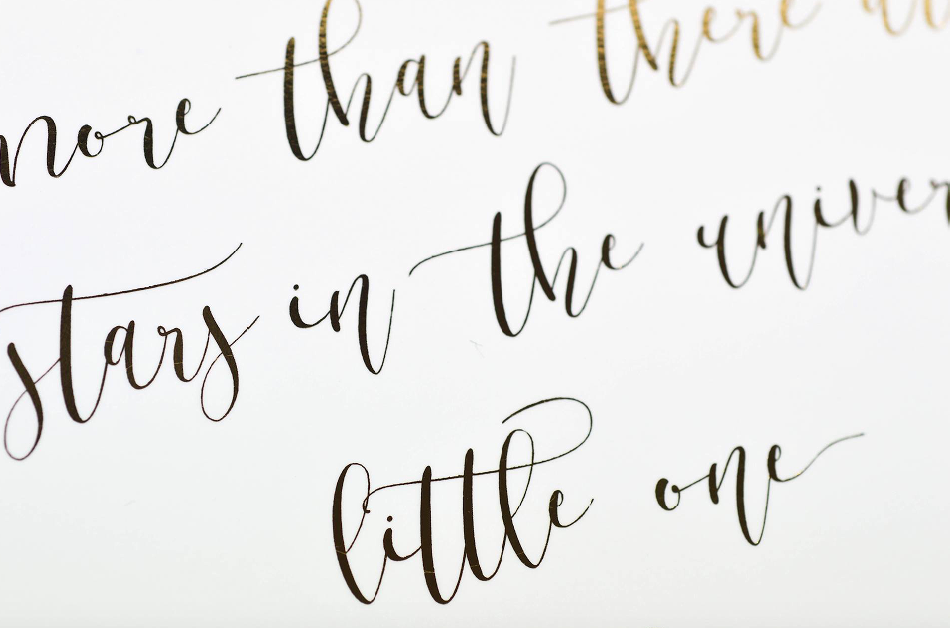 more than there
stars in the univer
little one